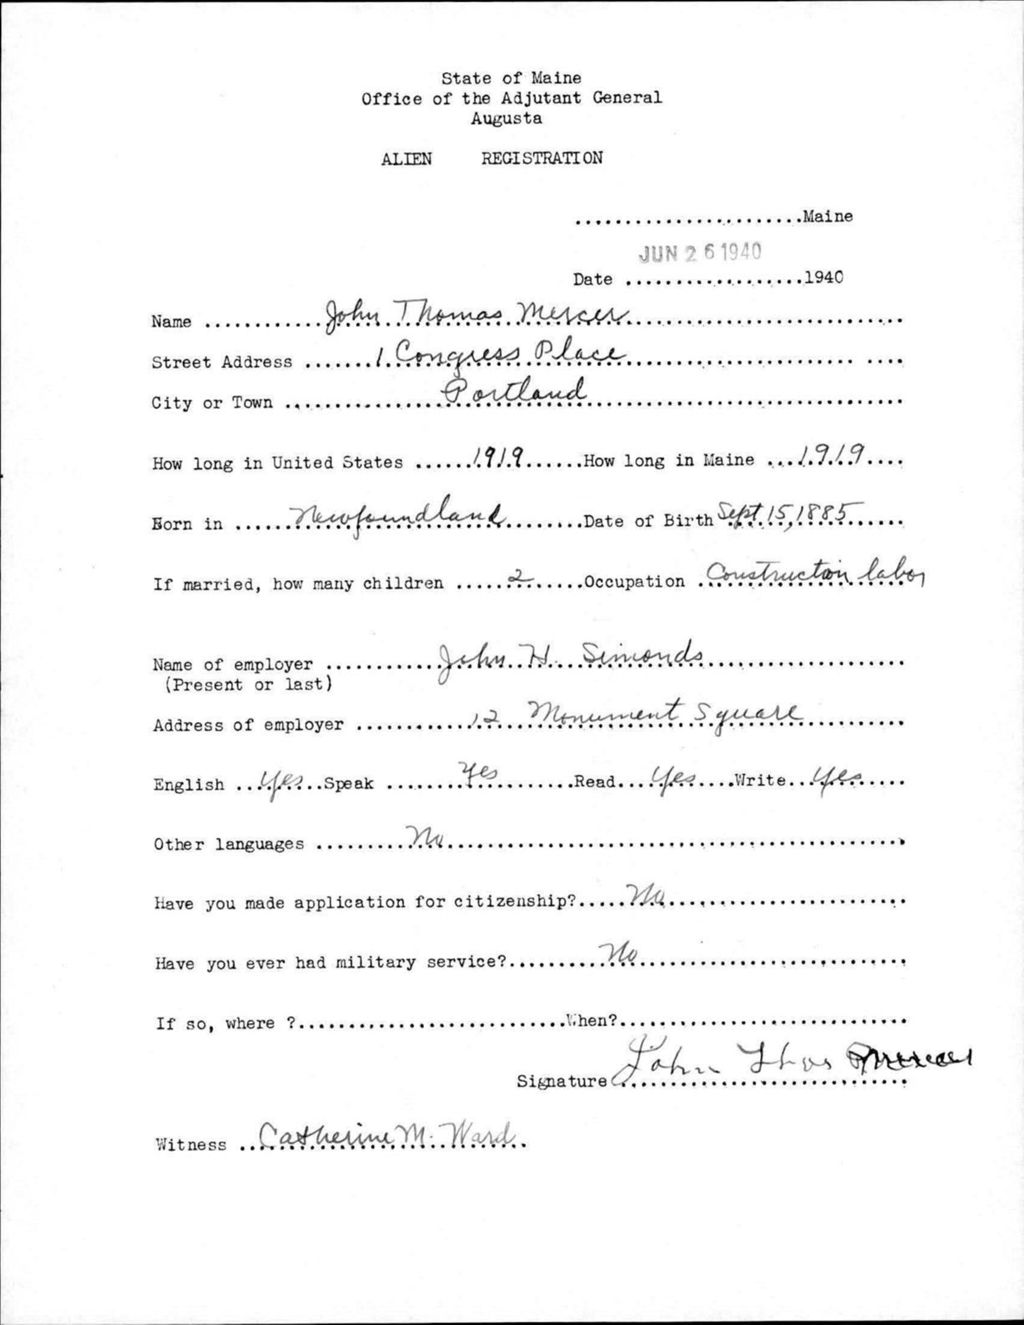 State of Maine
Office of the Adjutant General
Augusta
ALIEN REGISTRATION
.......................Maine
JUN 26 1940
Date ..................1940
Name ............John Thomas Mercer............................
Street Address .......1 Congress Place............................ ....
City or Town ................Portland................................
How long in United States ......1919......How long in Maine ...1919....
Born in ......Newfoundland........Date of Birth Sept 15, 1885......
If married, how many children .....2.....Occupation .Construction labor
Name of employer ...........John H. Simonds....................
(Present or last)
Address of employer ............12 Monument Square..........
English ...Yes..Speak ........Yes...........Read...Yes....Write..Yes.....
Other languages .........No..............................................
Have you made application for citizenship?.....No........................
Have you ever had military service?..........No...........................
If so, where ?...........................When?.............................
Signature John Thos Mercer
Witness ..Catherine M. Ward.